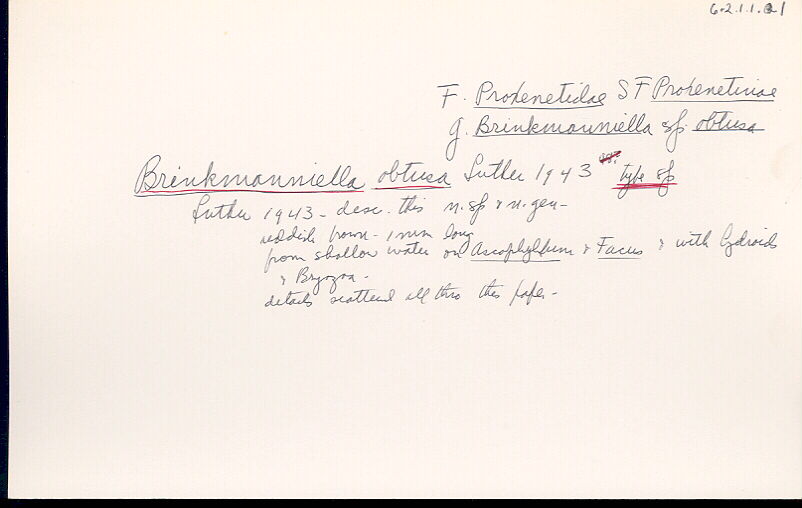 6.2.1.1.21
F. Proxenetidae SF Proxenetinae
g. Brinkmanniella sp. obtusa
Brinkmanniella obtusa Luther 1943 type sp
Luther 1943 - desc. this n. sp & n. gen -
reddish brown - 1 mm long
from shallow water on Ascophyllum & Fucus & with hydroids
& Bryozoa -
details scattered all thro this paper -